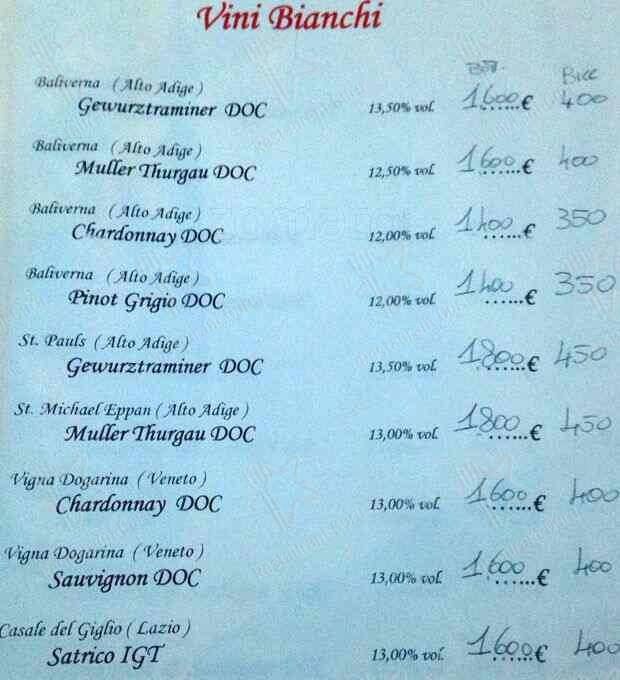 Vini Bianchi
Bott. Bicc
Baliverna ( Alto Adige )
Gewurztraminer DOC 13,50% vol. 1600 ......€ 400
Baliverna ( Alto Adige )
Muller Thurgau DOC 12,50% vol. 1600 ......€ 400
Baliverna ( Alto Adige )
Chardonnay DOC 12,00% vol. 1400 ......€ 350
Baliverna ( Alto Adige )
Pinot Grigio DOC 12,00% vol. 1400 ......€ 350
St. Pauls ( Alto Adige )
Gewurztraminer DOC 13,50% vol. 1800 ......€ 450
St. Michael Eppan ( Alto Adige )
Muller Thurgau DOC 13,00% vol. 1800 ......€ 450
Vigna Dogarina ( Veneto )
Chardonnay DOC 13,00% vol. 1600 ......€ 400
Vigna Dogarina ( Veneto )
Sauvignon DOC 13,00% vol. 1600 ......€ 400
Casale del Giglio ( Lazio )
Satrico IGT 13,00% vol. 1600 ......€ 400